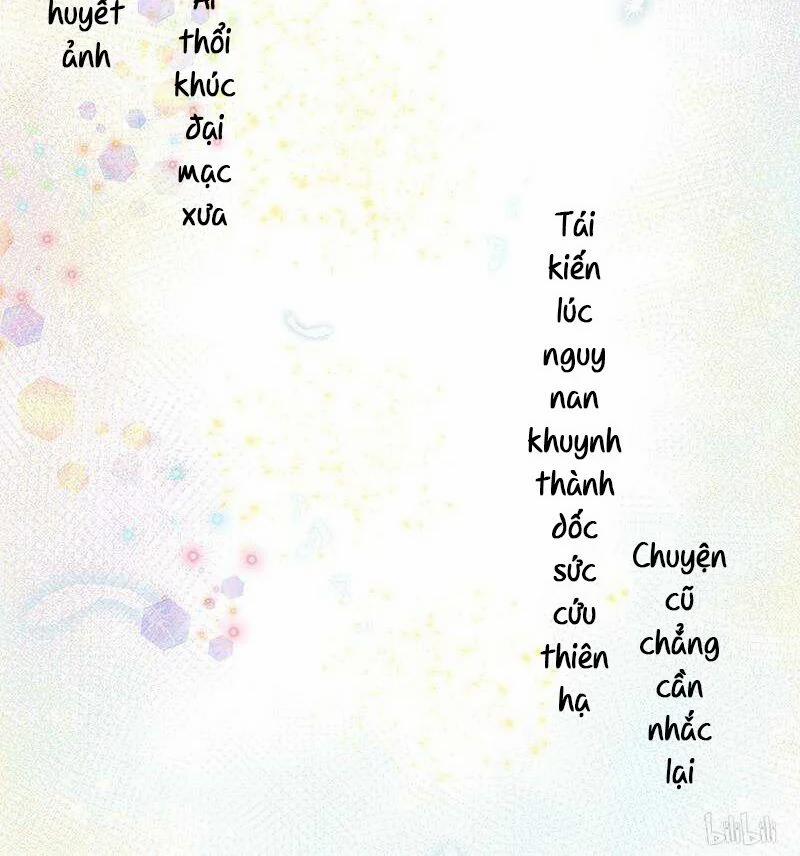 huyết
ảnh
Ai
thổi
khúc
đại
mạc
xưa
Tái
kiến
lúc
nguy
nan
khuynh
thành
dốc
sức
cứu
thiên
hạ
Chuyện
cũ
chẳng
cần
nhắc
lại
bilibili